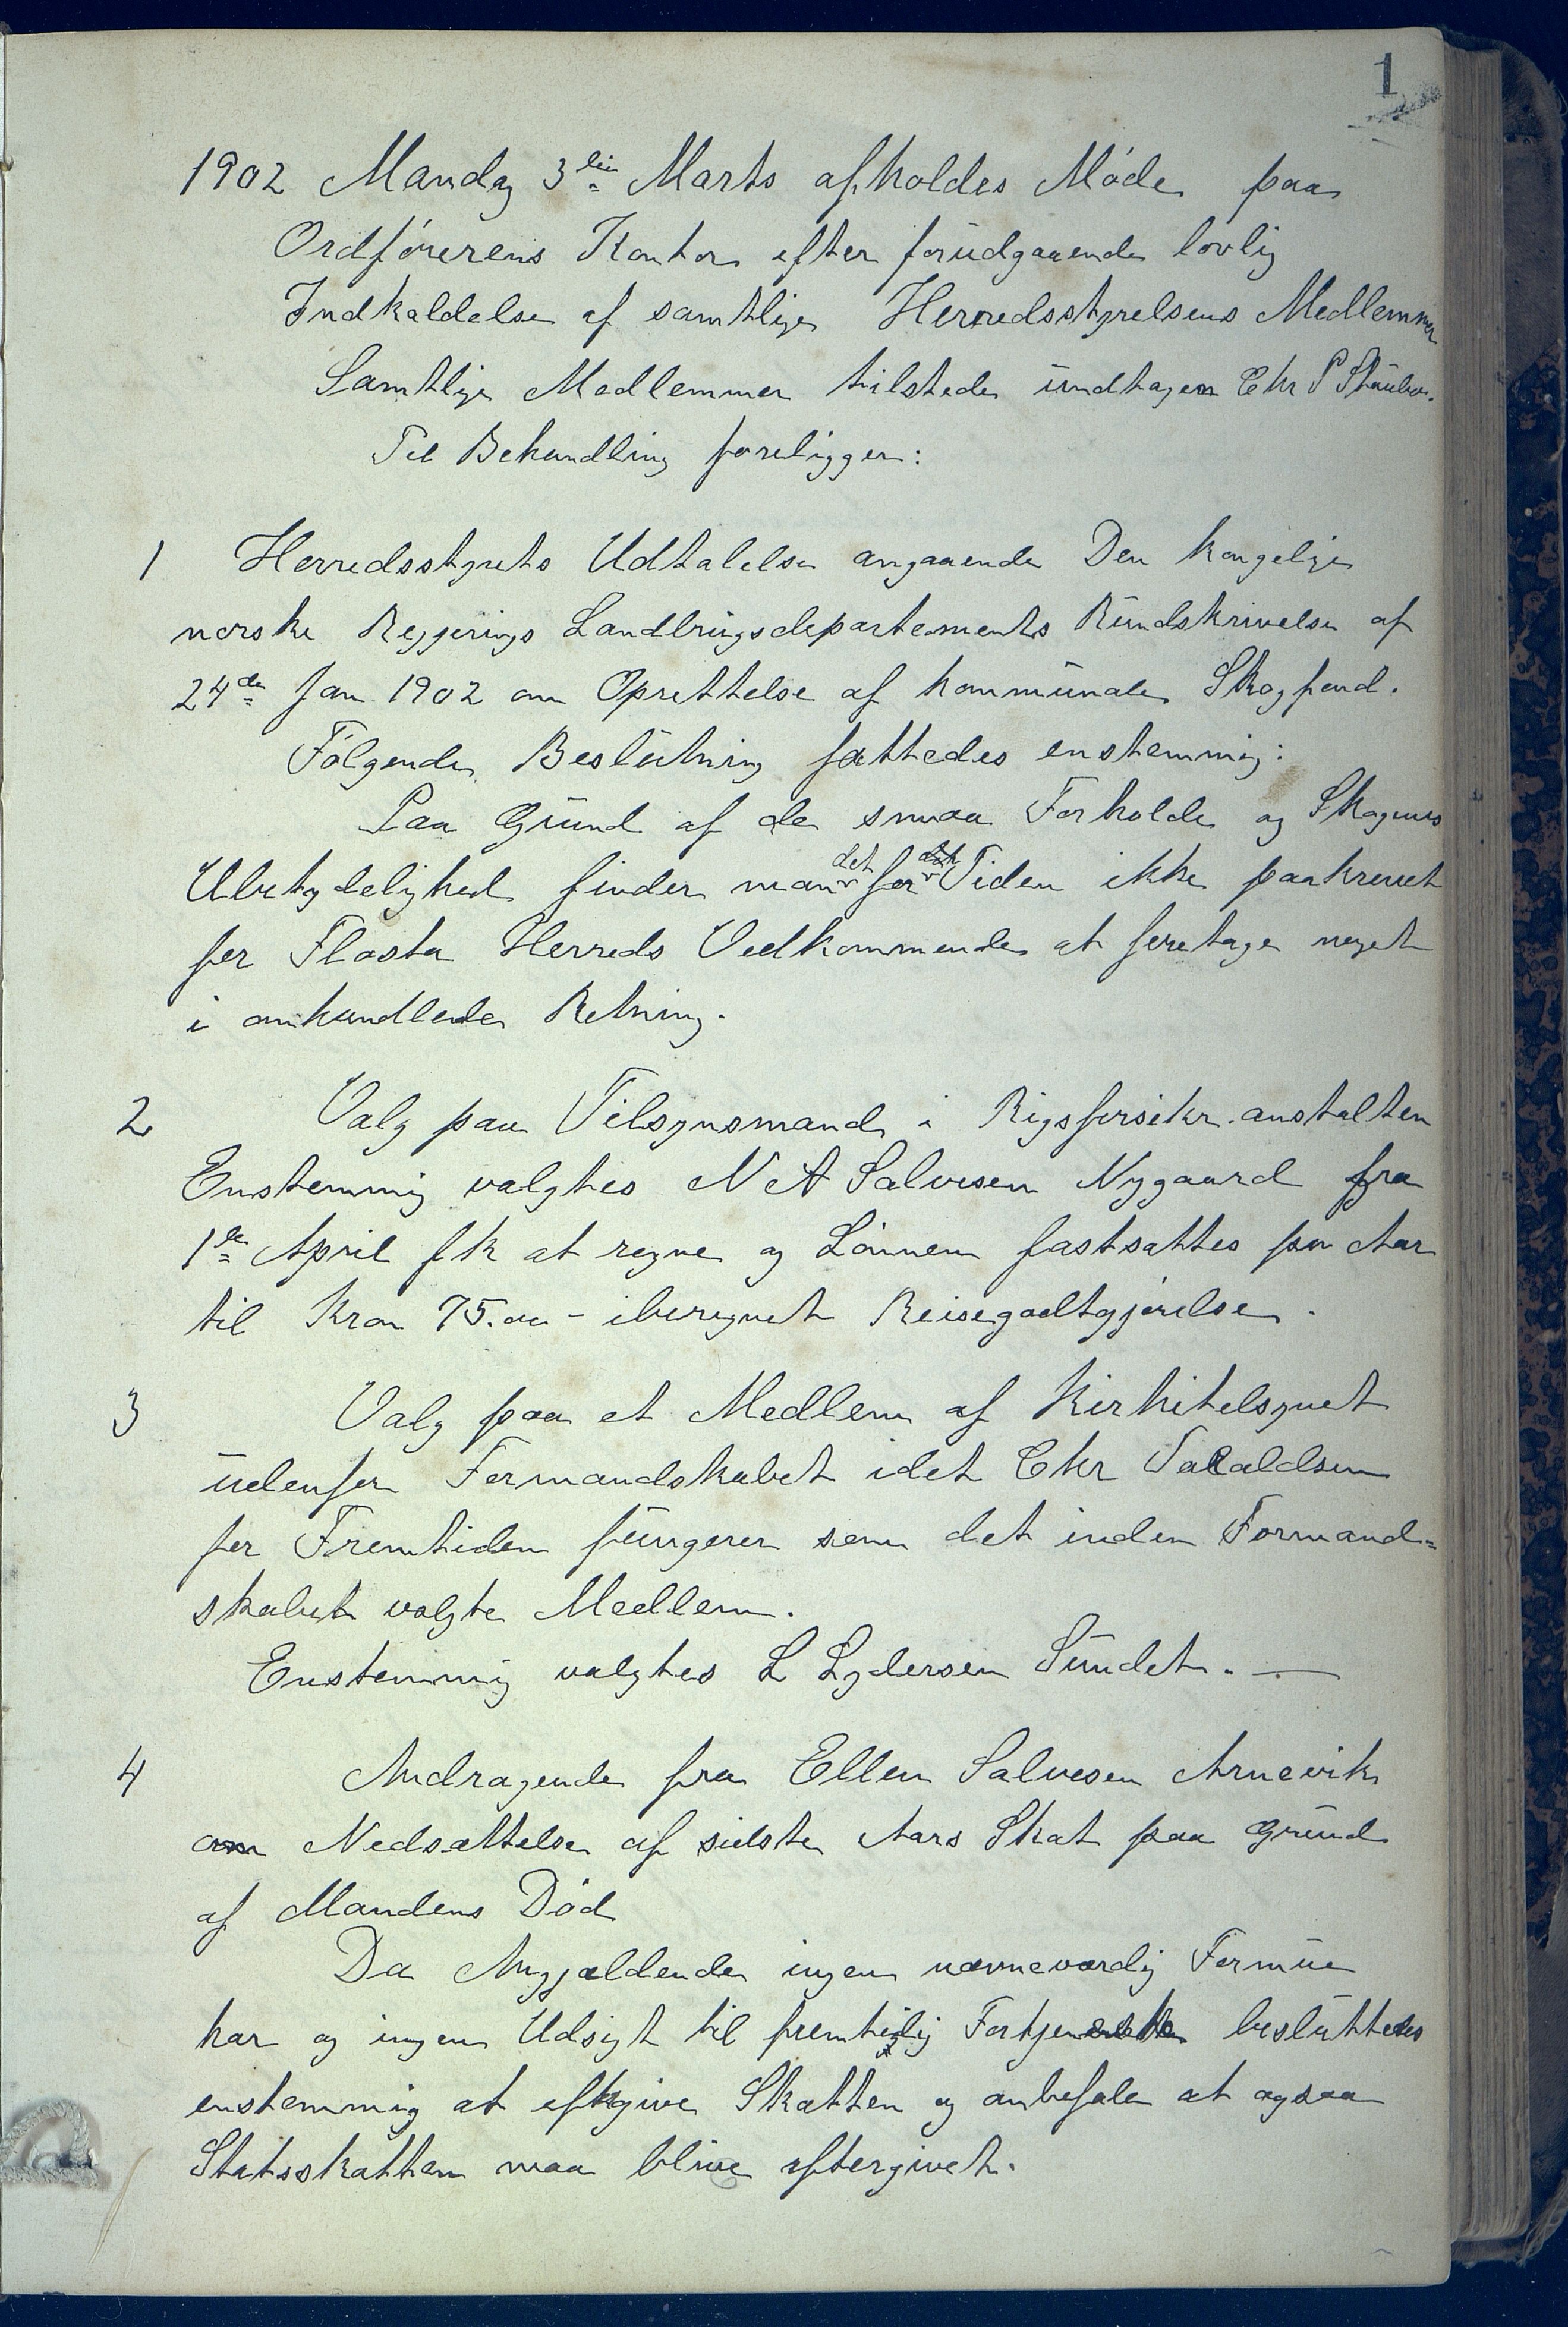 1
1902 Mandag 3die Marts afholdes Møde paa
Ordførerens Kontor efter forudgaaende lovlig
Indkaldelse af samtlige Herredsstyrelsens Medlemmer
Samtlige Medlemmer tilstede undtagen Chr P Staubo.
Til Behandling foreligger:
1 Herredsstyrets Udtalelse angaaende Den kongelige
norske Regjerings Landbrugsdepartements Rundskrivelse af
24de Jan 1902 om Oprettelse af kommunale Skogfond.
Følgende Beslutning fattedes enstemmig:
Paa Grund af de smaa Forholde og Skogens
Ubetydelighed finder man det for Tiden ikke paakrevet
for Flosta Herreds Vedkommende at foretage noget
i omhandlede Retning.
2 Valg paa Tilsynsmand i Rigsforsikr.anstalten
Enstemmig valgtes N A Salvesen Nygaard fra
1ste April fk at regne og Lønnen fastsattes pr Aar
til Kron 75.oo - iberegnet Reisegodtgjørelse.
3 Valg paa et Medlem af Kirketilsynet
udenfor Formandskabet idet Chr Taraldsen
for Fremtiden fungerer som det inden Formand=
skabet valgte Medlem.
Enstemmig valgtes L Lydersen Sundet. —
4 Andragende fra Ellen Salvesen Arnevik
om Nedsættelse af sidste Aars Skat paa Grund
af Mandens Død
Da Angjældende ingen nævneværdig Formue
har og ingen Udsigt til fremtidig Fortjeneste besluttedes
enstemmig at eftergive Skatten og anbefale at ogsaa
Statsskatten maa blive eftergivet.